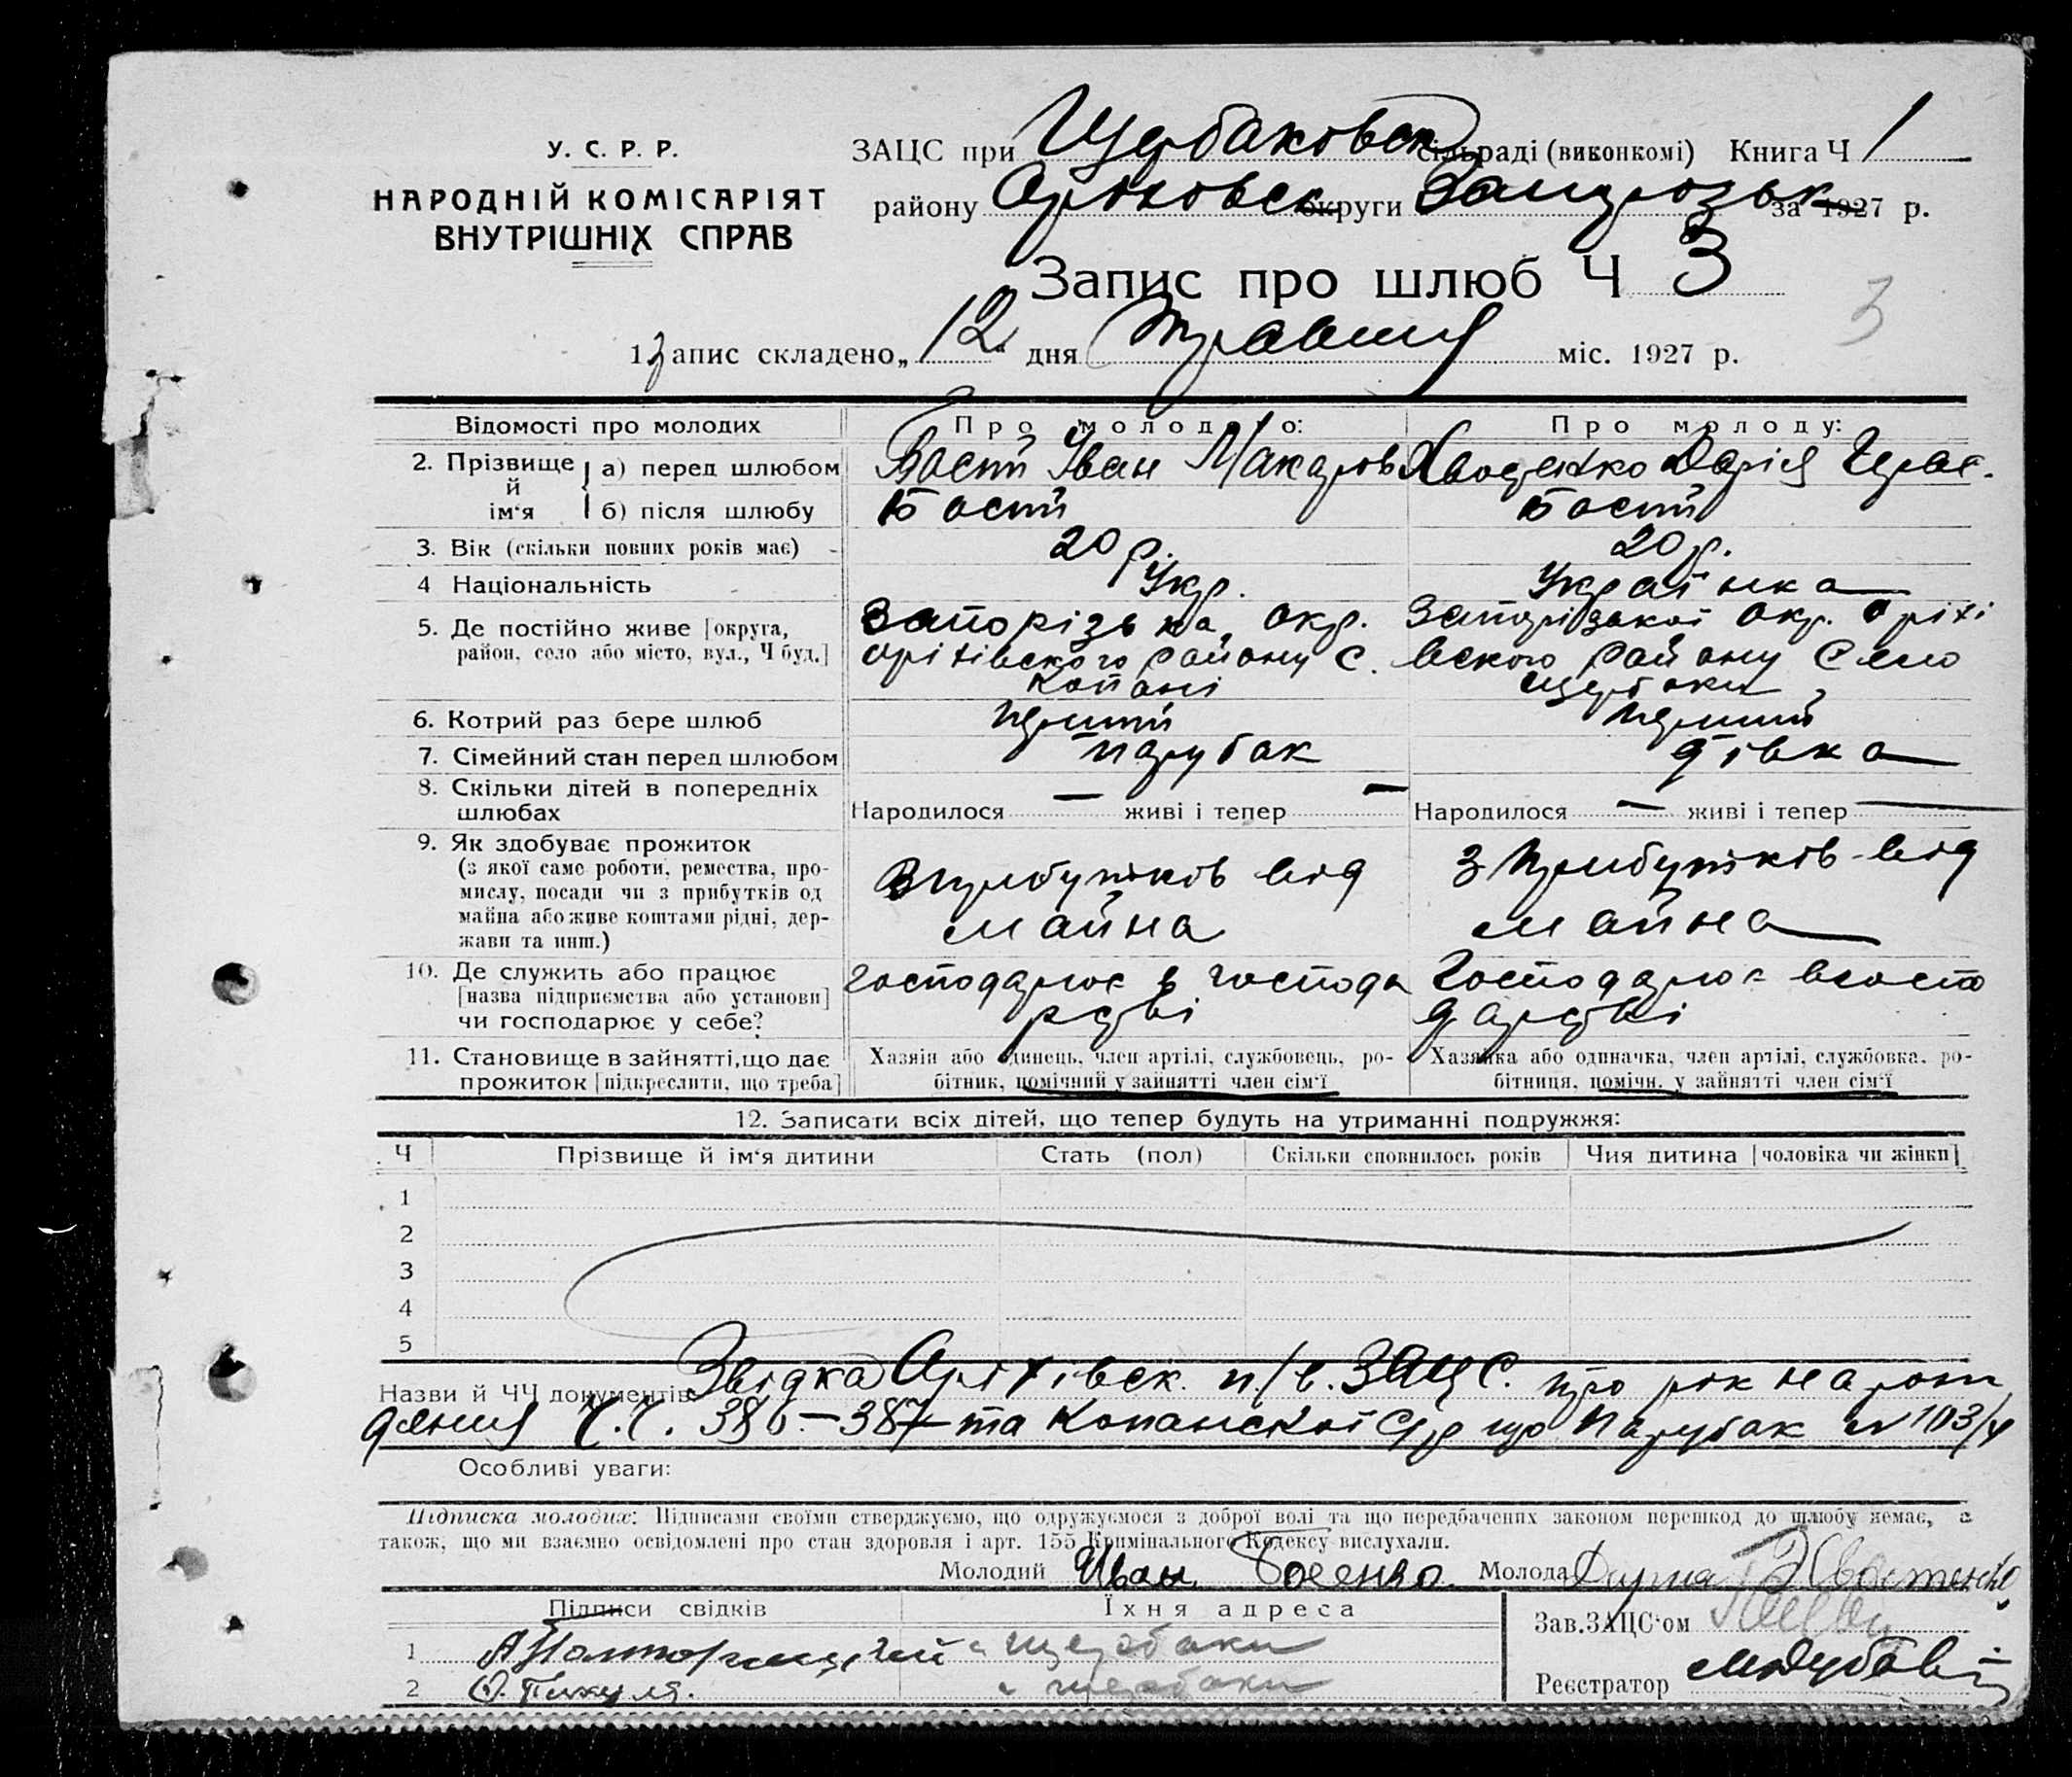 У. С. Р. Р.
НАРОДНІЙ КОМІСАРІЯТ
ВНУТРІШНІХ СПРАВ
ЗАЦС при Щербаковск сільраді (виконкомі) Книга Ч 1
району Оріховск округи Запорозьк за 1927 р.
Запис про шлюб Ч 3
3
1 Запис складено „12“ дня Травня міс. 1927 р.
Відомості про молодих
Про молодого:
Про молоду:
2. Прізвище й ім‘я
а) перед шлюбом
Іван Макаров
Дарія
б) після шлюбу
3. Вік (скільки повних років має)
20 р.
20 р.
4 Національність
Укр.
Українка
5. Де постійно живе [округа,
район, село або місто, вул., Ч буд.]
Запорізька, окр.
оріхівского району с.
Копані
Запорізької окр. оріхі
вского району Село
Щербаки
6. Котрий раз бере шлюб
перший
перший
7. Сімейний стан перед шлюбом
парубак
дівка
8. Скільки дітей в попередніх
шлюбах
Народилося — живі і тепер —
Народилося — живі і тепер —
9. Як здобуває прожиток
(з якої саме роботи, ремества, про-
мислу, посади чи з прибутків од
майна або живе коштами рідні, дер-
жави та инш.)
Зприбутков від
майна
З прибутків від
майна
10. Де служить або працює
[назва підприємства або установи]
чи господарює у себе?
господарює в господа
рстві
Господарює вгоспо
дарстві
11. Становище в зайнятті, що дає
прожиток [підкреслити, що треба]
Хазяїн або одинець, член артілі, службовець, ро-
бітник, помічний у зайнятті член сім‘ї
Хазяйка або одиначка, член артілі, службовка, ро-
бітниця, помічн. у зайнятті член сім‘ї
12. Записати всіх дітей, що тепер будуть на утриманні подружжя:
Ч
Прізвище й ім‘я дитини
Стать (пол)
Скільки сповнилось років
Чия дитина [чоловіка чи жінки]
1
2
3
4
5
Назви й ЧЧ документів: Звідка Оріхівск. п/в. ЗАЦС. про рік народ
дения Ч.Ч. 386–387 та Копанскої що Парубак № 103/4
Особливі уваги:
Підписка молодих: Підписами своїми стверджуємо, що одружуємося з доброї волі та що передбачених законом перешкод до шлюбу немає, а
також, що ми взаємно освідомлені про стан здоровля і арт. 155 Кримінального Кодексу вислухали.
Молодий Иван
Молода
Підписи свідків
Їхня адреса
Зав. ЗАЦС‘ом
1
с Щербаки
2 Пикуля.
с Щербаки
Реєстратор